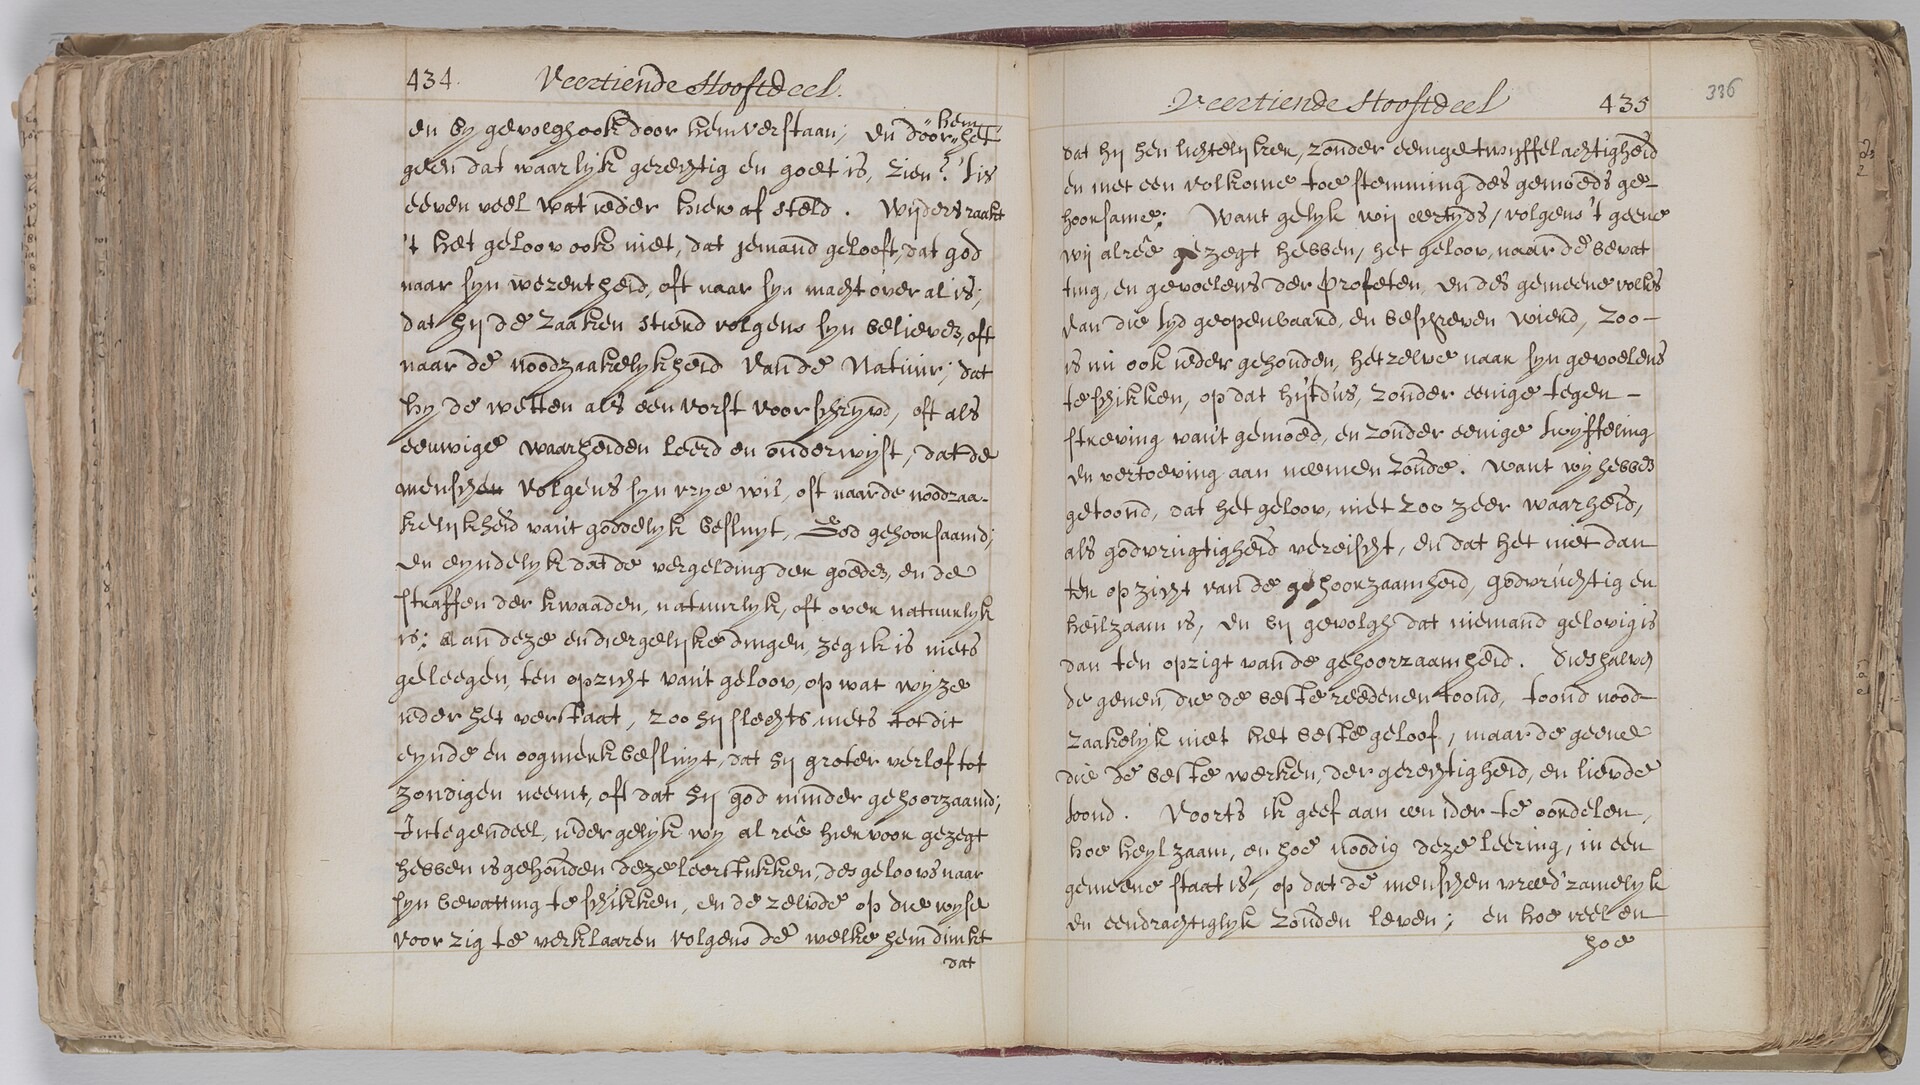 434. Veertiende Hooftdeel.
en by gevolgh ook door hem verstaan; en door hem het
geen dat waarlyk gerechtig en goet is, zien? 't is
eeven veel wat ieder hier af steld. Wijders raakt
't het geloov ook niet, dat jemand gelooft, dat god
naar syn wezentheid, oft naar syn macht over al is;
dat hij de zaaken stierd volgens syn believen, oft
naar de noodzaakelykheid van de Natuur; dat
hy de wetten als een vorst voorschryvd, oft als
eeuwige waarheiden leerd en onderwyst; dat de
menschen volgens syn vrye wil, oft naar de noodzaa-
kelykheid van't goddelyk besluyt, God gehoorsaamd;
en eyndelyk dat de vergelding der goeden, en de
straffen der kwaaden, natuurlyk, oft over natuurlyk
is: aan deze en diergelijke dingen, zeg ik is niets
geleegen, ten opzicht van't geloov, op wat wyze
ieder het verstaat, zoo hij slechts niets tot dit
eynde en oogmerk besluyt, dat hij groter verlof tot
zondigen neemt, oft dat hij god minder gehoorzaamd;
Integendeel, ieder gelyk wy al reê hier voor gezegt
hebben is gehouden deze leerstukken, des geloovs naar
syn bevatting te schikken, en de zelvde op die wyse
voor zig te verklaaren volgens de welke hem dunkt
dat
Veertiende Hooftdeel 435
336
dat hij hen lichtelyker, zonder eenige twyffelachtigheid
en met een volkome toestemming des gemoeds ge-
hoorsame: Want gelyk wij eertyds, volgens 't geene
wij alreê gezegt hebben, het geloov, naar de bevat
ting, en gevoelens der Profeten, en des gemeene volks
van die tyd geopenbaard, en beschreven wierd, zoo-
is nu ook ieder gehouden, het zelve naar syn gevoelens
te schikken, op dat hij't dus, zonder eenige tegen-
streving van't gemoed, en zonder eenige twyffeling
en vertoeving aan neemen zoude. Want wij hebben
getoond, dat het geloov, niet zoo zeer waarheid,
als godvrugtigheid vereischt, en dat het niet dan
ten opzicht van de gehoorzaamheid, godvruchtig en
heilzaam is, en bij gevolgh dat niemand gelovig is
dan ten opzigt van de gehoorzaamheid. Dieshalven
de geenen, die de beste reedenen toond, toond nood-
zaakelyk niet het beste geloof, maar de geene
die de beste werken, der gerechtigheid, en lievde
toond. Voorts ik geef aan een ider te oordelen,
hoe heylzaam, en hoe noodig deze leering, in een
gemeene staat is, op dat de menschen vreed'zamelyk
en eendrachtiglyk zouden leven; en hoe veel en
hoe